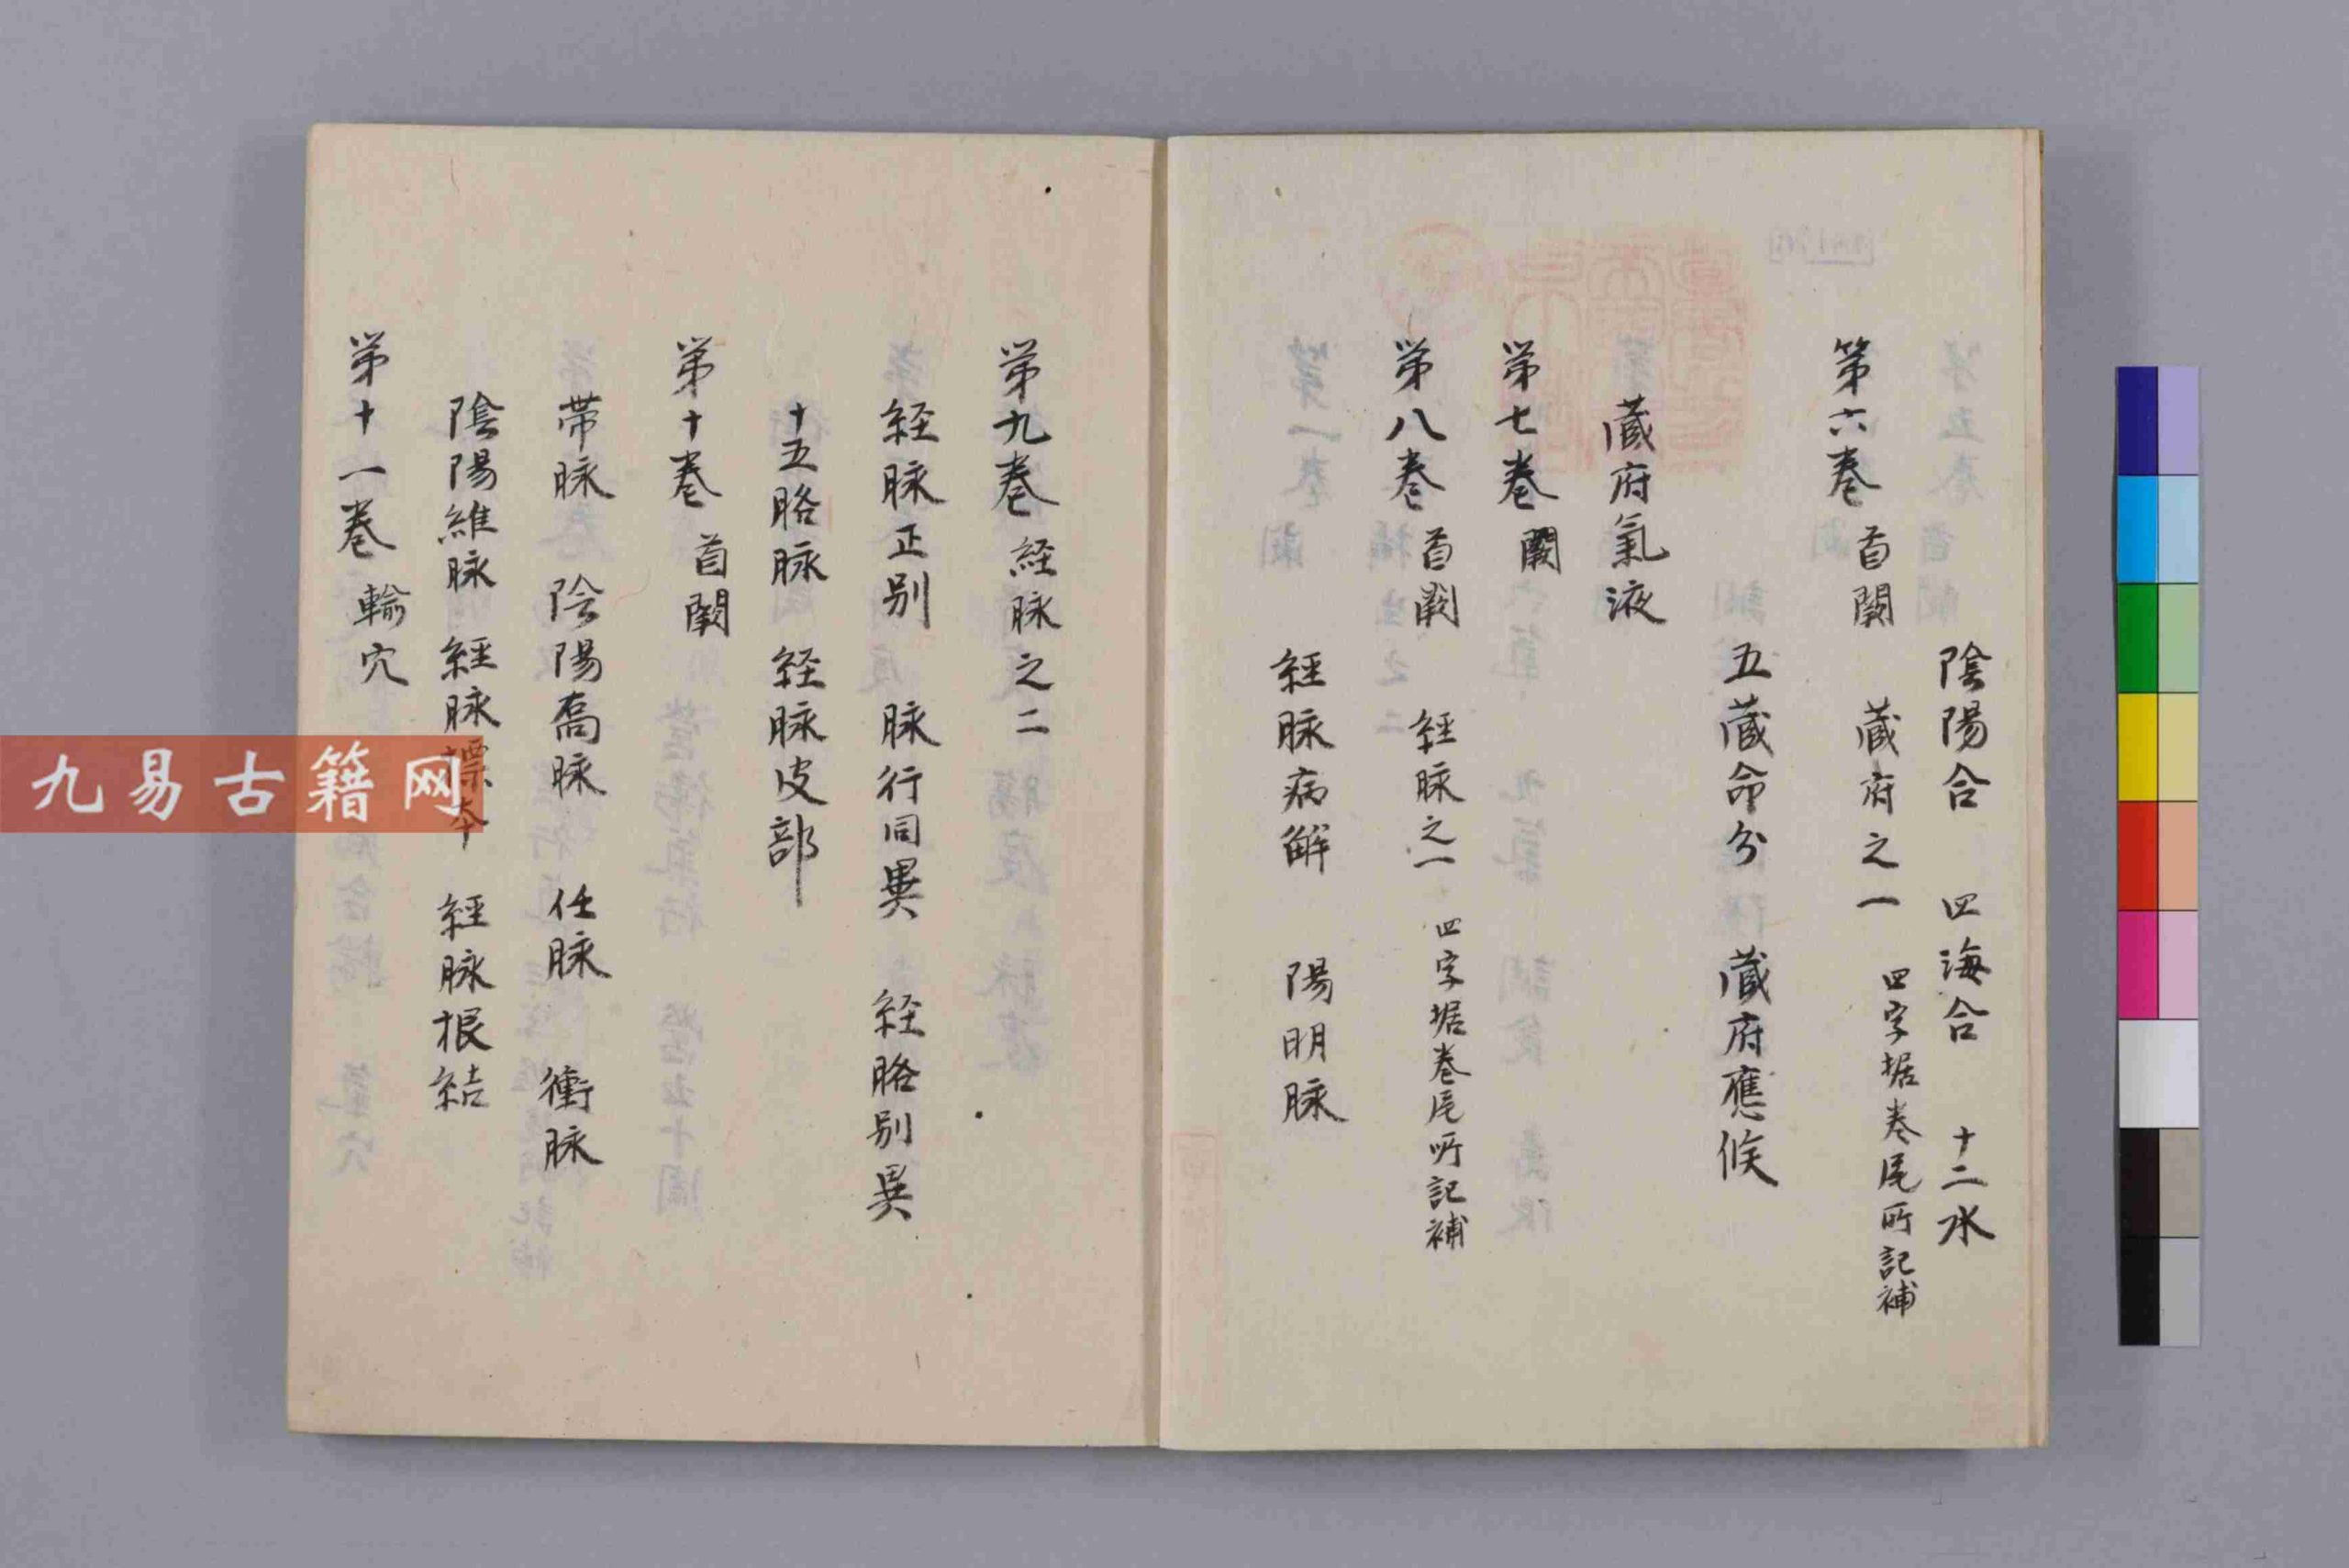 陰陽合　四海合　十二水
第六巻　首闕　蔵府之一　四字据巻尾所記補
五蔵命分　蔵府應候
蔵府氣液
第七巻　闕
第八巻　首闕　経脉之一　四字据巻尾所記補
経脉病解　陽明脉
第九巻　経脉之二
経脉正別　脉行同異　経胳別異
十五胳脉　経脉皮部
第十巻　首闕
帯脉　陰陽喬脉　任脉　衝脉
陰陽維脉　經脉標本　經脉根結
第十一巻　輸穴
九易古籍网